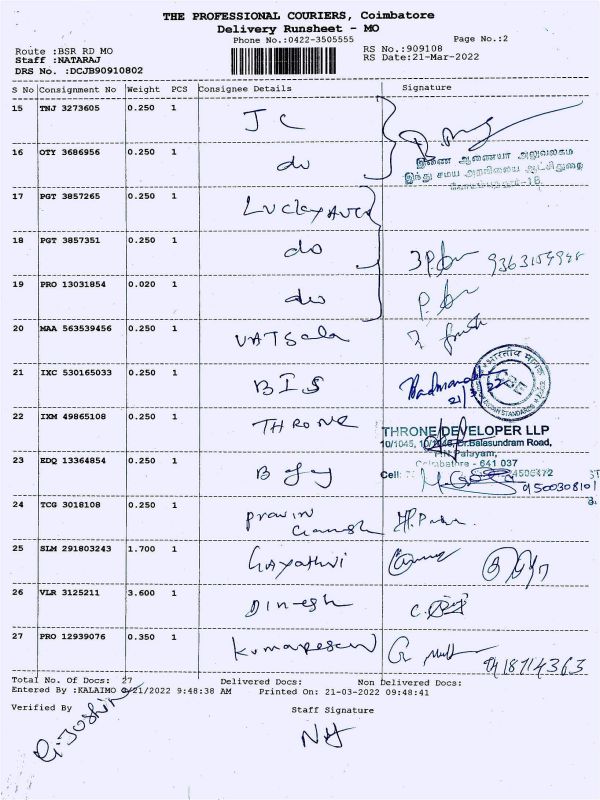 THE PROFESSIONAL COURIERS, Coimbatore
Delivery Runsheet - MO
Phone No.:0422-3505555
Page No.:2
Route :BSR RD MO
RS No.:909108
Staff :NATARAJ
RS Date:21-Mar-2022
DRS No. :DCJB90910802
S No Consignment No Weight PCS Consignee Details Signature
15 TNJ 3273605 0.250 1 J C
16 OTY 3686956 0.250 1 do
இணை ஆணையர் அலுவலகம்
இந்து சமய அறநிலைய ஆட்சித்துறை
17 PGT 3857265 0.250 1
18 PGT 3857351 0.250 1 do
19 PRO 13031854 0.020 1 do
20 MAA 563539456 0.250 1 VATSala
21 IXC 530165033 0.250 1 BIS
22 IXM 49865108 0.250 1 THRONE
THRONE DEVELOPER LLP
10/1045, Dr.Balasundram Road,
Palayam,
Coimbatore - 641 037
23 EDQ 13364854 0.250 1
Cell:
24 TCG 3018108 0.250 1 Pravin
Ganesh
25 SLM 291803243 1.700 1 Gayathri
26 VLR 3125211 3.600 1 Dinesh
27 PRO 12939076 0.350 1 Kumaresan
Total No. Of Docs: 27 Delivered Docs: Non Delivered Docs:
Entered By :KALAIMO /21/2022 9:48:38 AM Printed On: 21-03-2022 09:48:41
Verified By Staff Signature